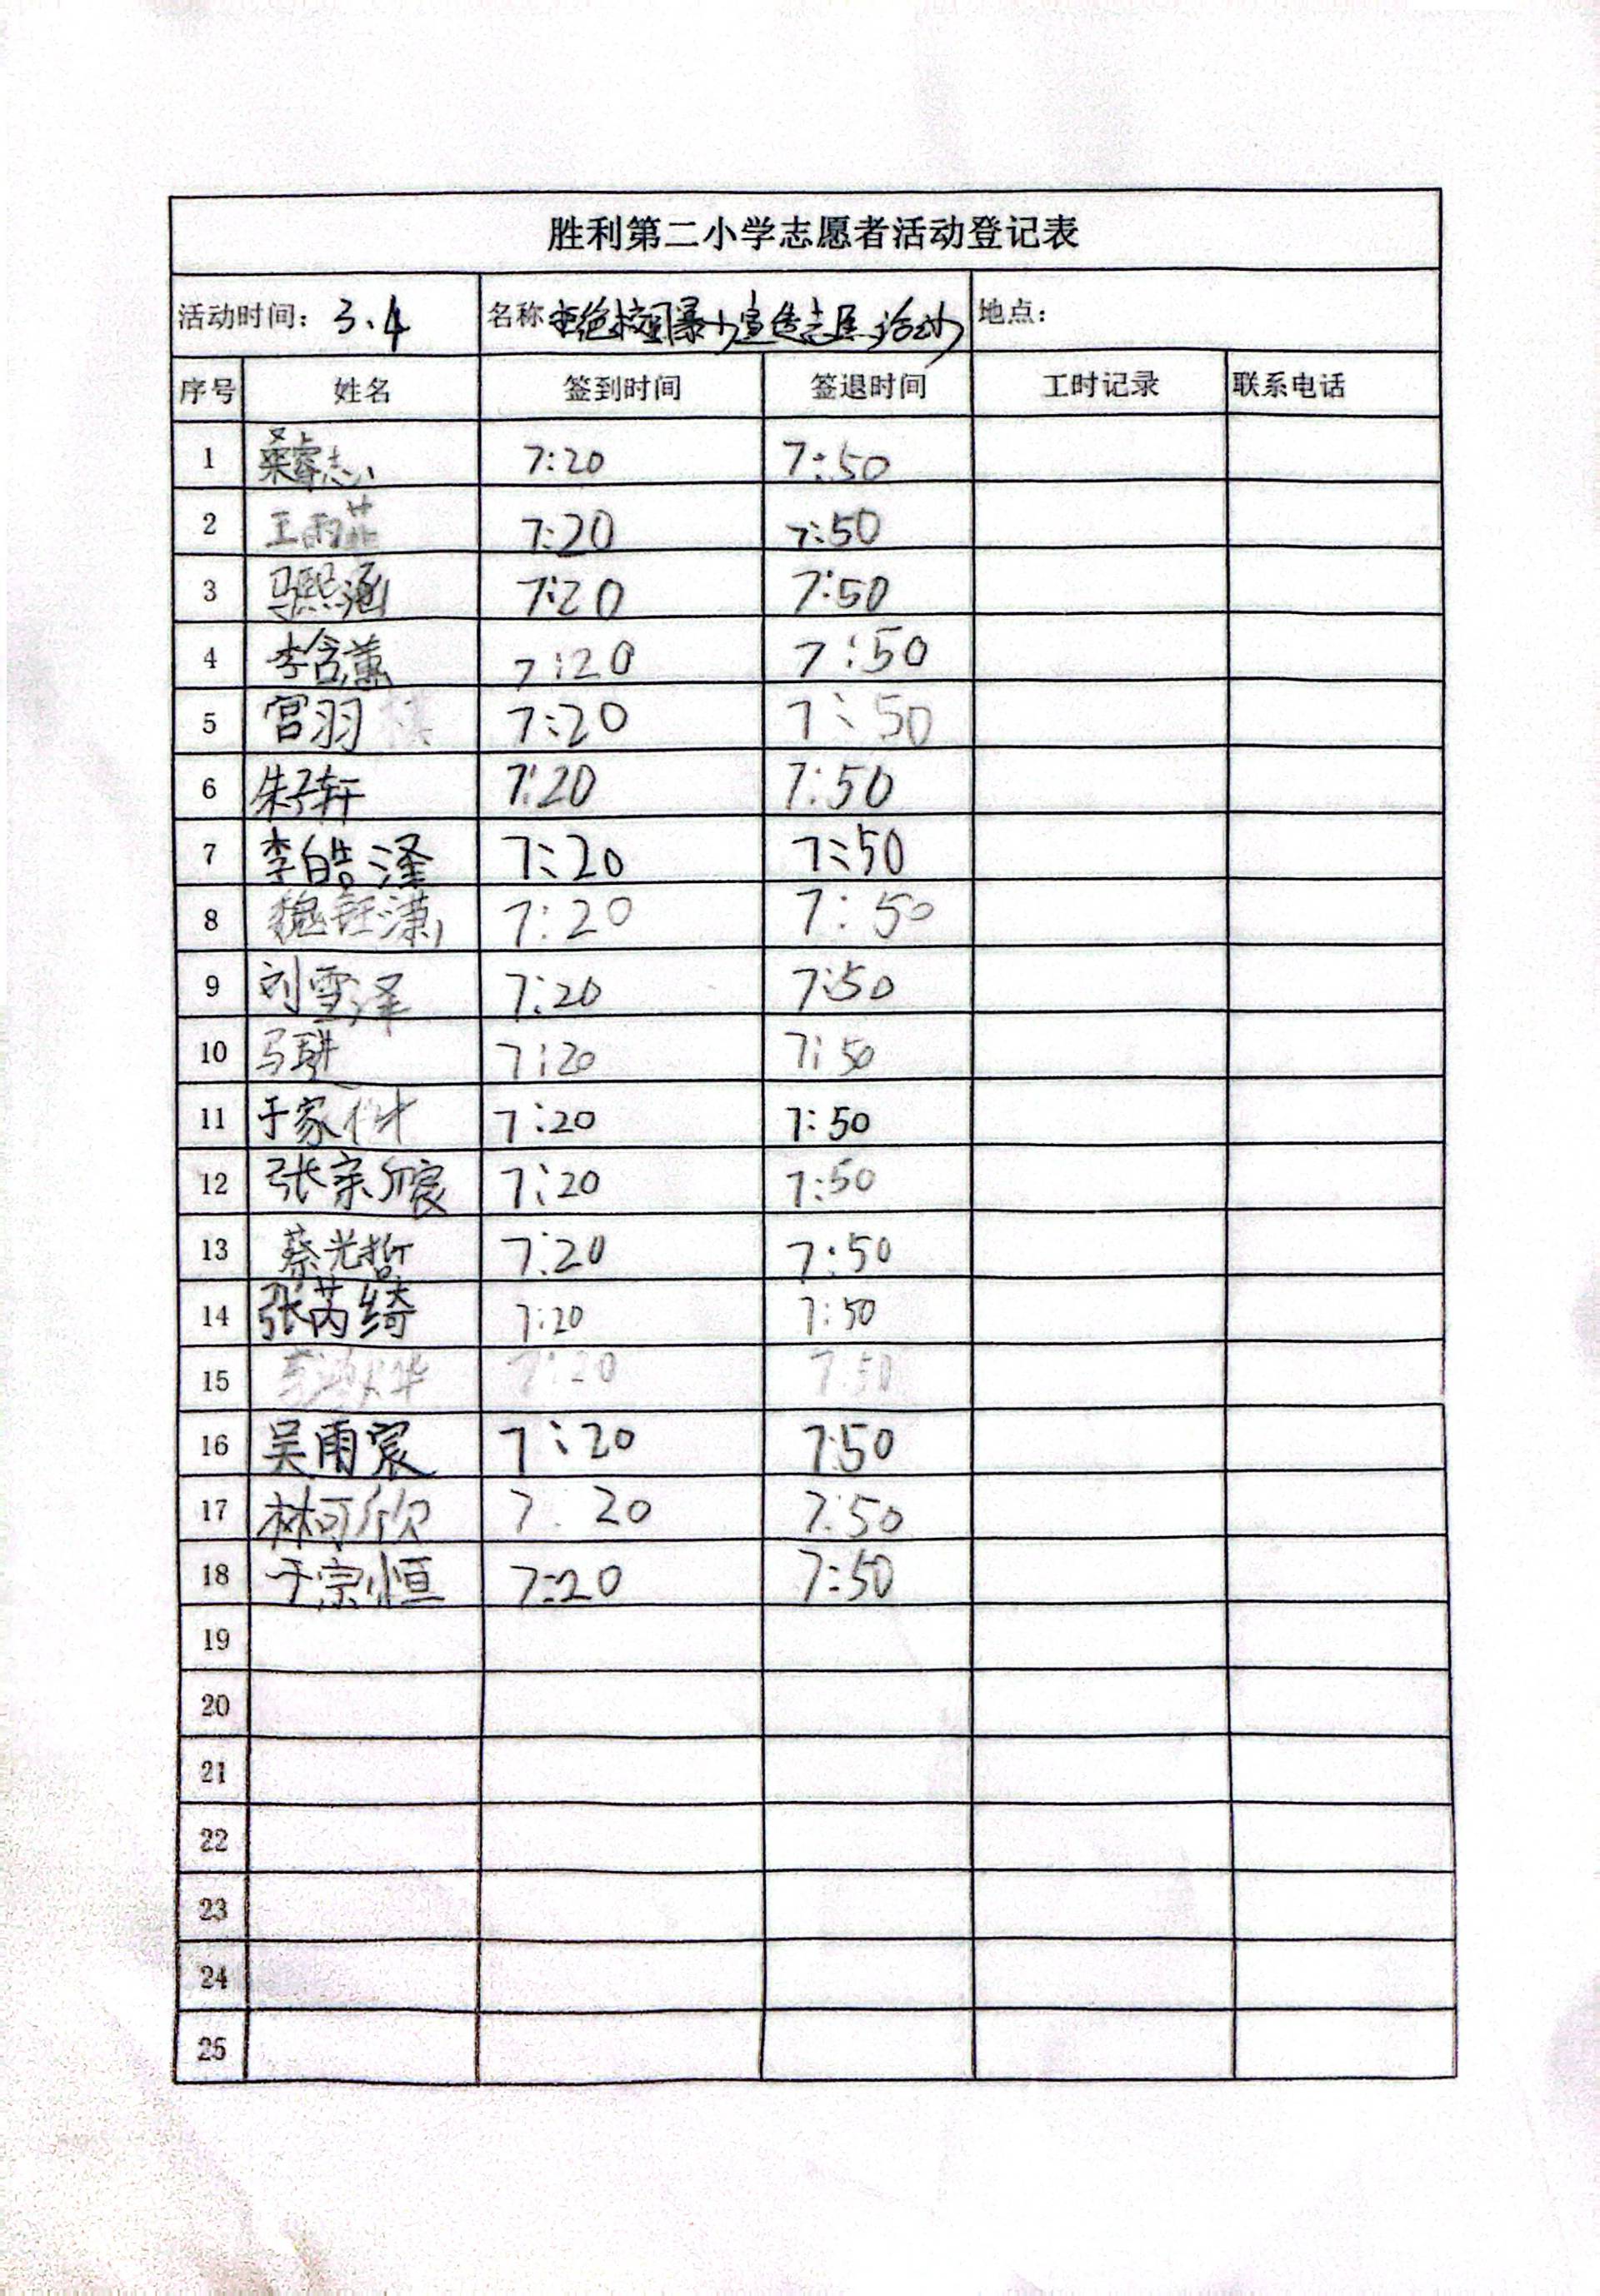 胜利第二小学志愿者活动登记表
活动时间：3.4 名称 拒绝校园暴力宣传志愿活动 地点：
序号 姓名 签到时间 签退时间 工时记录 联系电话
1 桑睿志 7:20 7:50
2 王雨 7:20 7:50
3 马熙涵 7:20 7:50
4 李含蕙 7:20 7:50
5 宫羽 7:20 7:50
6 朱子轩 7:20 7:50
7 李皓泽 7:20 7:50
8 魏钰潇 7:20 7:50
9 刘雪泽 7:20 7:50
10 马 7:20 7:50
11 于家 7:20 7:50
12 张亲宸 7:20 7:50
13 蔡光哲 7:20 7:50
14 张芮绮 7:20 7:50
15 7:20 7:50
16 吴雨宸 7:20 7:50
17 林可欣 7:20 7:50
18 于宗恒 7:20 7:50
19
20
21
22
23
24
25